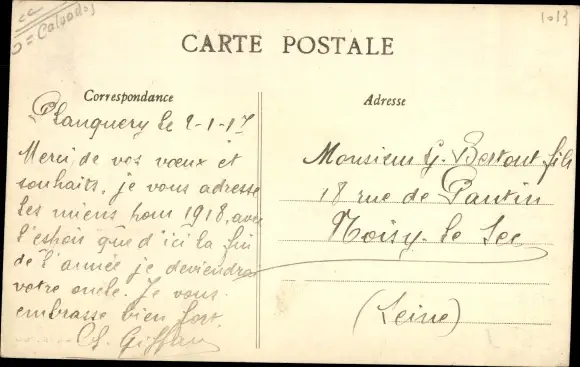 = Calvados
1013
CARTE POSTALE
Correspondance
Planquery le 2-1-17
Merci, de vos vœux et
souhaits, je vous adresse
les miens pour 1918, avec
l'espoir que d'ici la fin
de l'année je deviendrai
votre oncle. Je vous
embrasse bien fort.
Ch.
Adresse
Monsieur G. Bertout fils
18 rue de Pantin
Noisy-le Sec
(Seine)